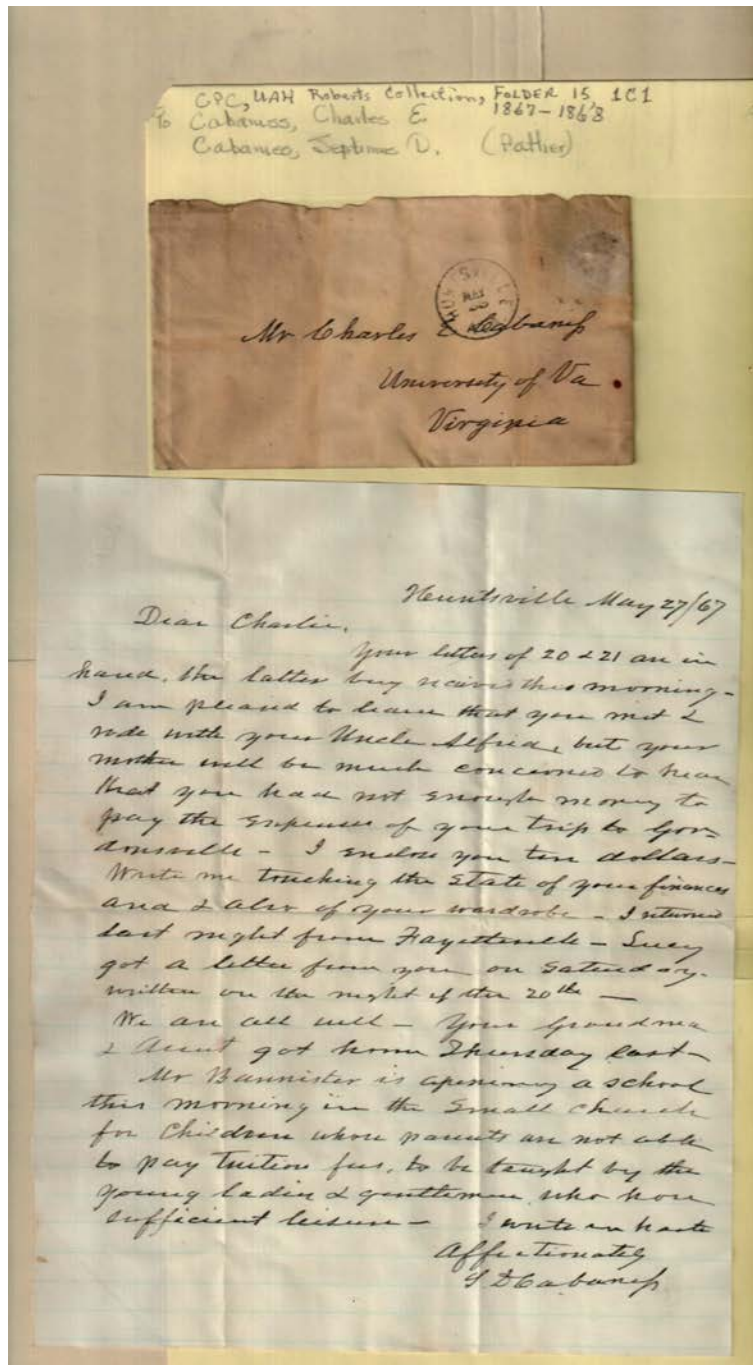 GPC, UAH Roberts Collection, FOLDER 15 1C1
To Cabaniss, Charles E 1867-1868
Cabaniss, Septimus D. (Father)
HUNTSVILLE
MAY
Mr Charles E Cabaniss
University of Va
Virginia
Huntsville May 27/67
Dear Charlie,
Your letters of 20 & 21 are in
hand, the latter being receivd this morning-
I am pleased to learn that you met &
rode with your Uncle Alfred, but your
mother will be much concerned to hear
that you had not enough money to
pay the expenses of your trip to Gor-
donsville - I enclose you ten dollars-
Write me touching the state of your finances
and & also of your wardrobe - I returned
last night from Fayetteville - Lucy
got a letter from you on Saturday.
written on the night of the 20th -
We are all well - Your Grandma
& Aunt got home Thursday last -
Mr Bannister is opening a school
this morning in the small church
for children whose parents are not able
to pay tuition fees, to be taught by the
young ladies & gentlemen who have
sufficient leisure - I write in haste
Affectionately
S D Cabaniss